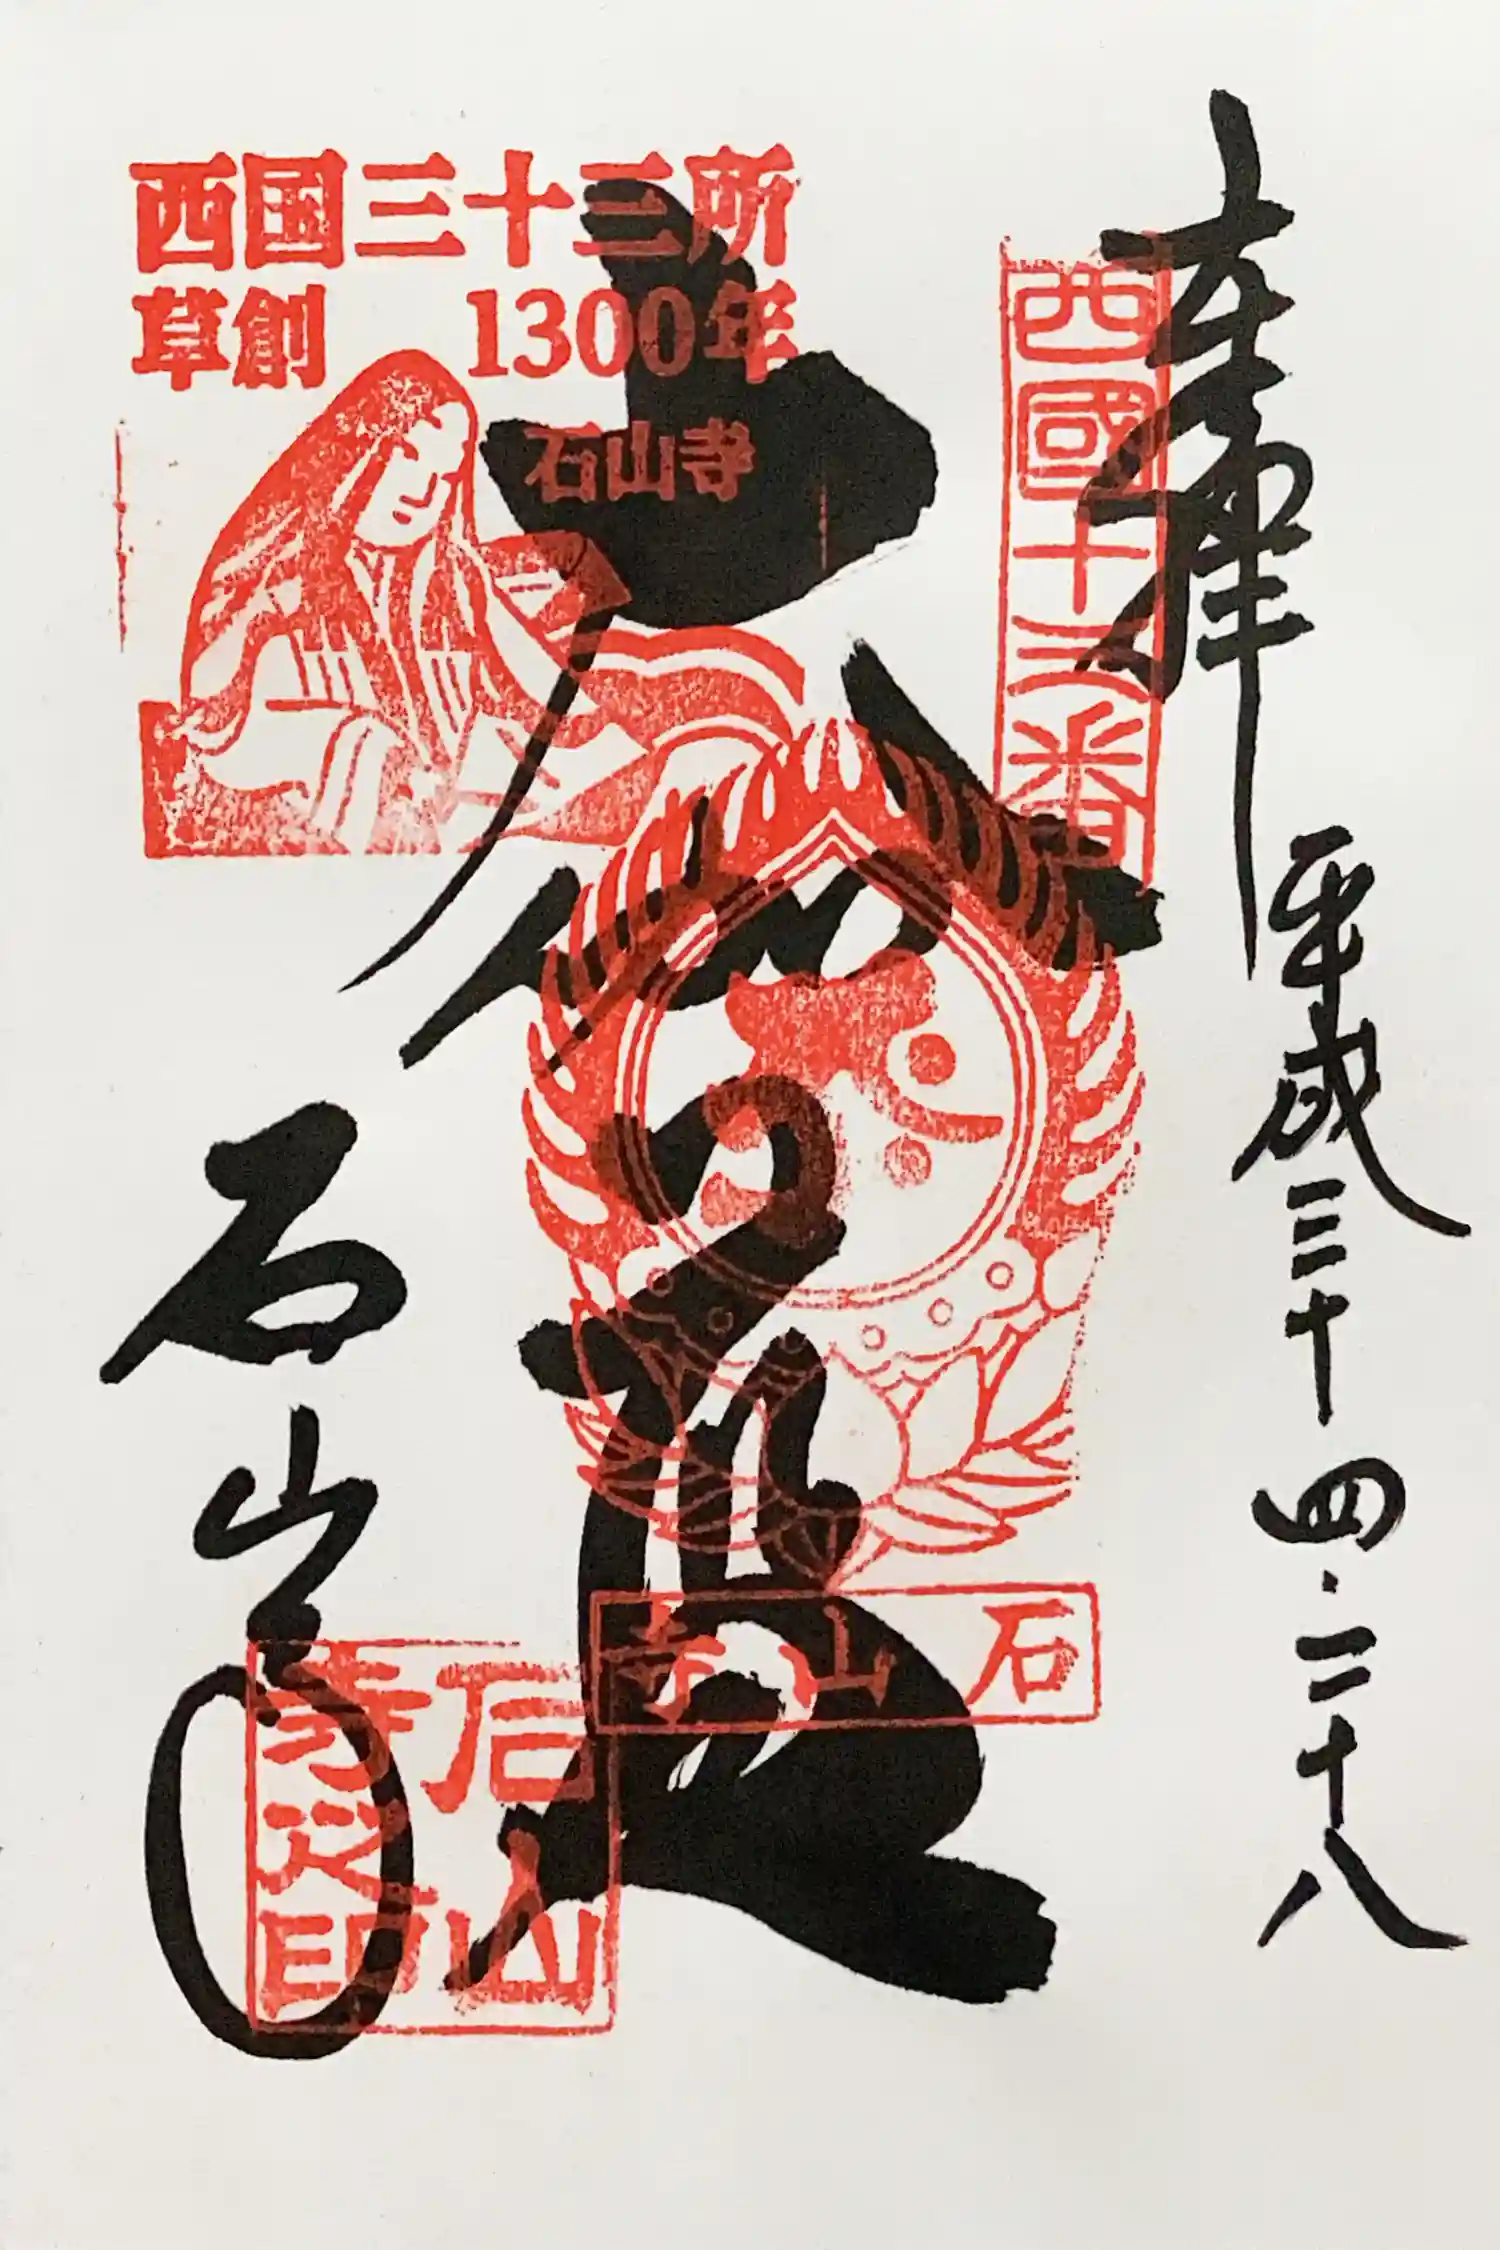 奉拝
平成三十四・二十八
西國十三番
西国三十三所
草創 1300年
石山寺
大伽藍
石山寺
石山
石山寺之印